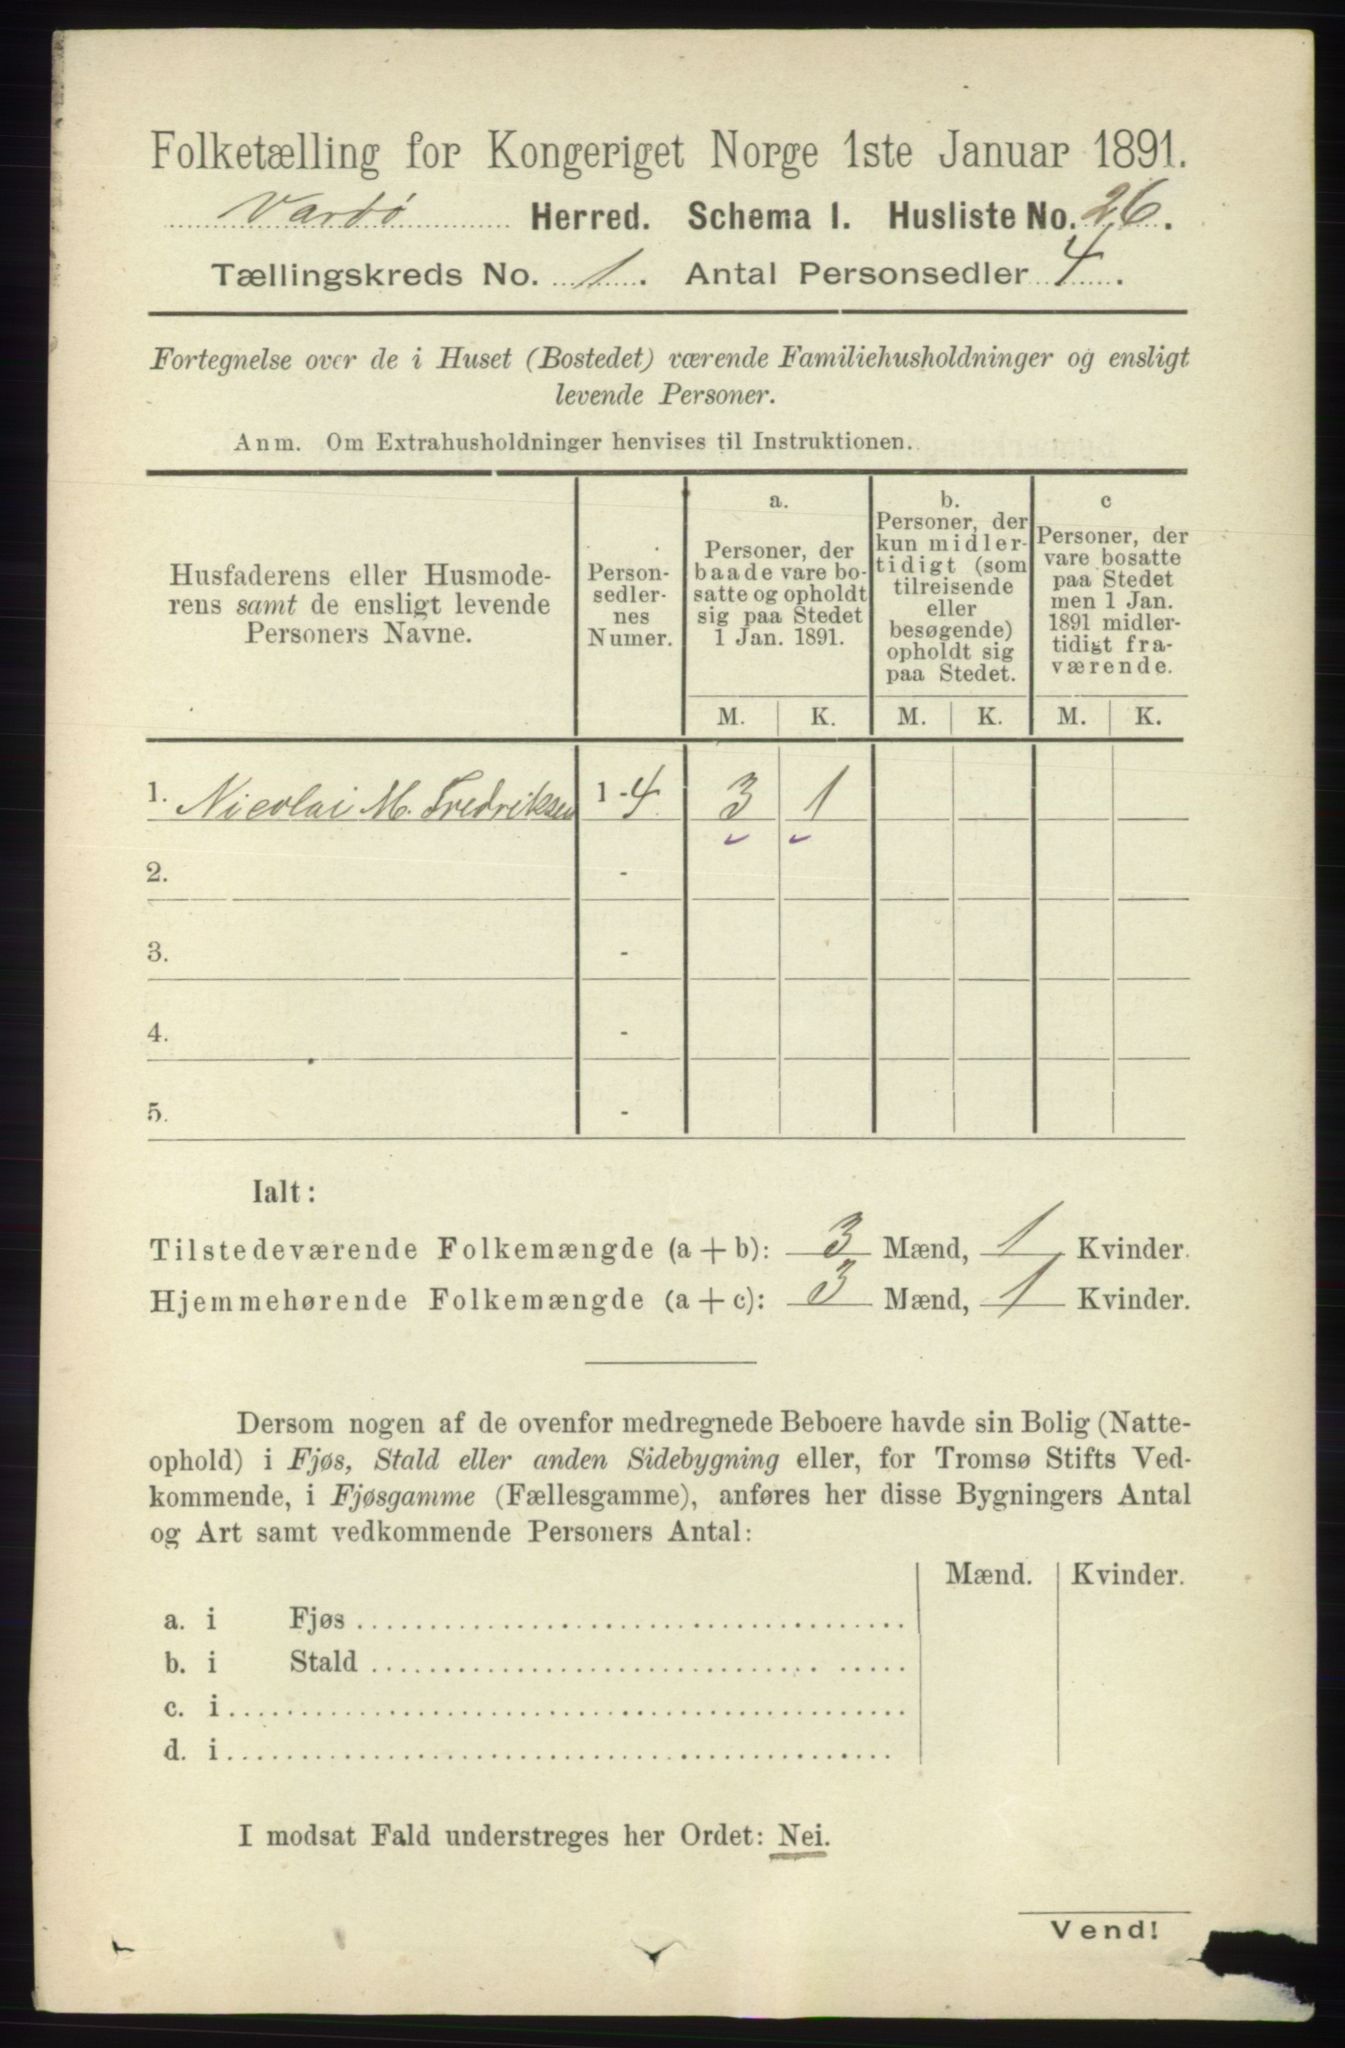 Folketælling for Kongeriget Norge 1ste Januar 1891.
Vardø Herred. Schema I. Husliste No. 26.
Tællingskreds No. 1. Antal Personsedler 4.
Fortegnelse over de i Huset (Bostedet) værende Familiehusholdninger og ensligt
levende Personer.
Anm. Om Extrahusholdninger henvises til Instruktionen.
Husfaderens eller Husmode-
rens samt de ensligt levende
Personers Navne.
Person-
sedler-
nes
Numer.
a.
Personer, der
baade vare bo-
satte og opholdt
sig paa Stedet
1 Jan. 1891.
b.
Personer, der
kun midler-
tidigt (som
tilreisende
eller
besøgende)
opholdt sig
paa Stedet.
c
Personer, der
vare bosatte
paa Stedet
men 1 Jan.
1891 midler-
tidigt fra-
værende.
M. K. M. K. M. K.
1. Nicolai M. Fredriksen 1-4 3 1
2. -
3. -
4. -
5. -
Ialt:
Tilstedeværende Folkemængde (a + b): 3 Mænd, 1 Kvinder.
Hjemmehørende Folkemængde (a + c): 3 Mænd, 1 Kvinder.
Dersom nogen af de ovenfor medregnede Beboere havde sin Bolig (Natte-
ophold) i Fjøs, Stald eller anden Sidebygning eller, for Tromsø Stifts Ved-
kommende, i Fjøsgamme (Fællesgamme), anføres her disse Bygningers Antal
og Art samt vedkommende Personers Antal:
Mænd. Kvinder.
a. i Fjøs
b. i Stald
c. i
d. i
I modsat Fald understreges her Ordet: Nei.
Vend!